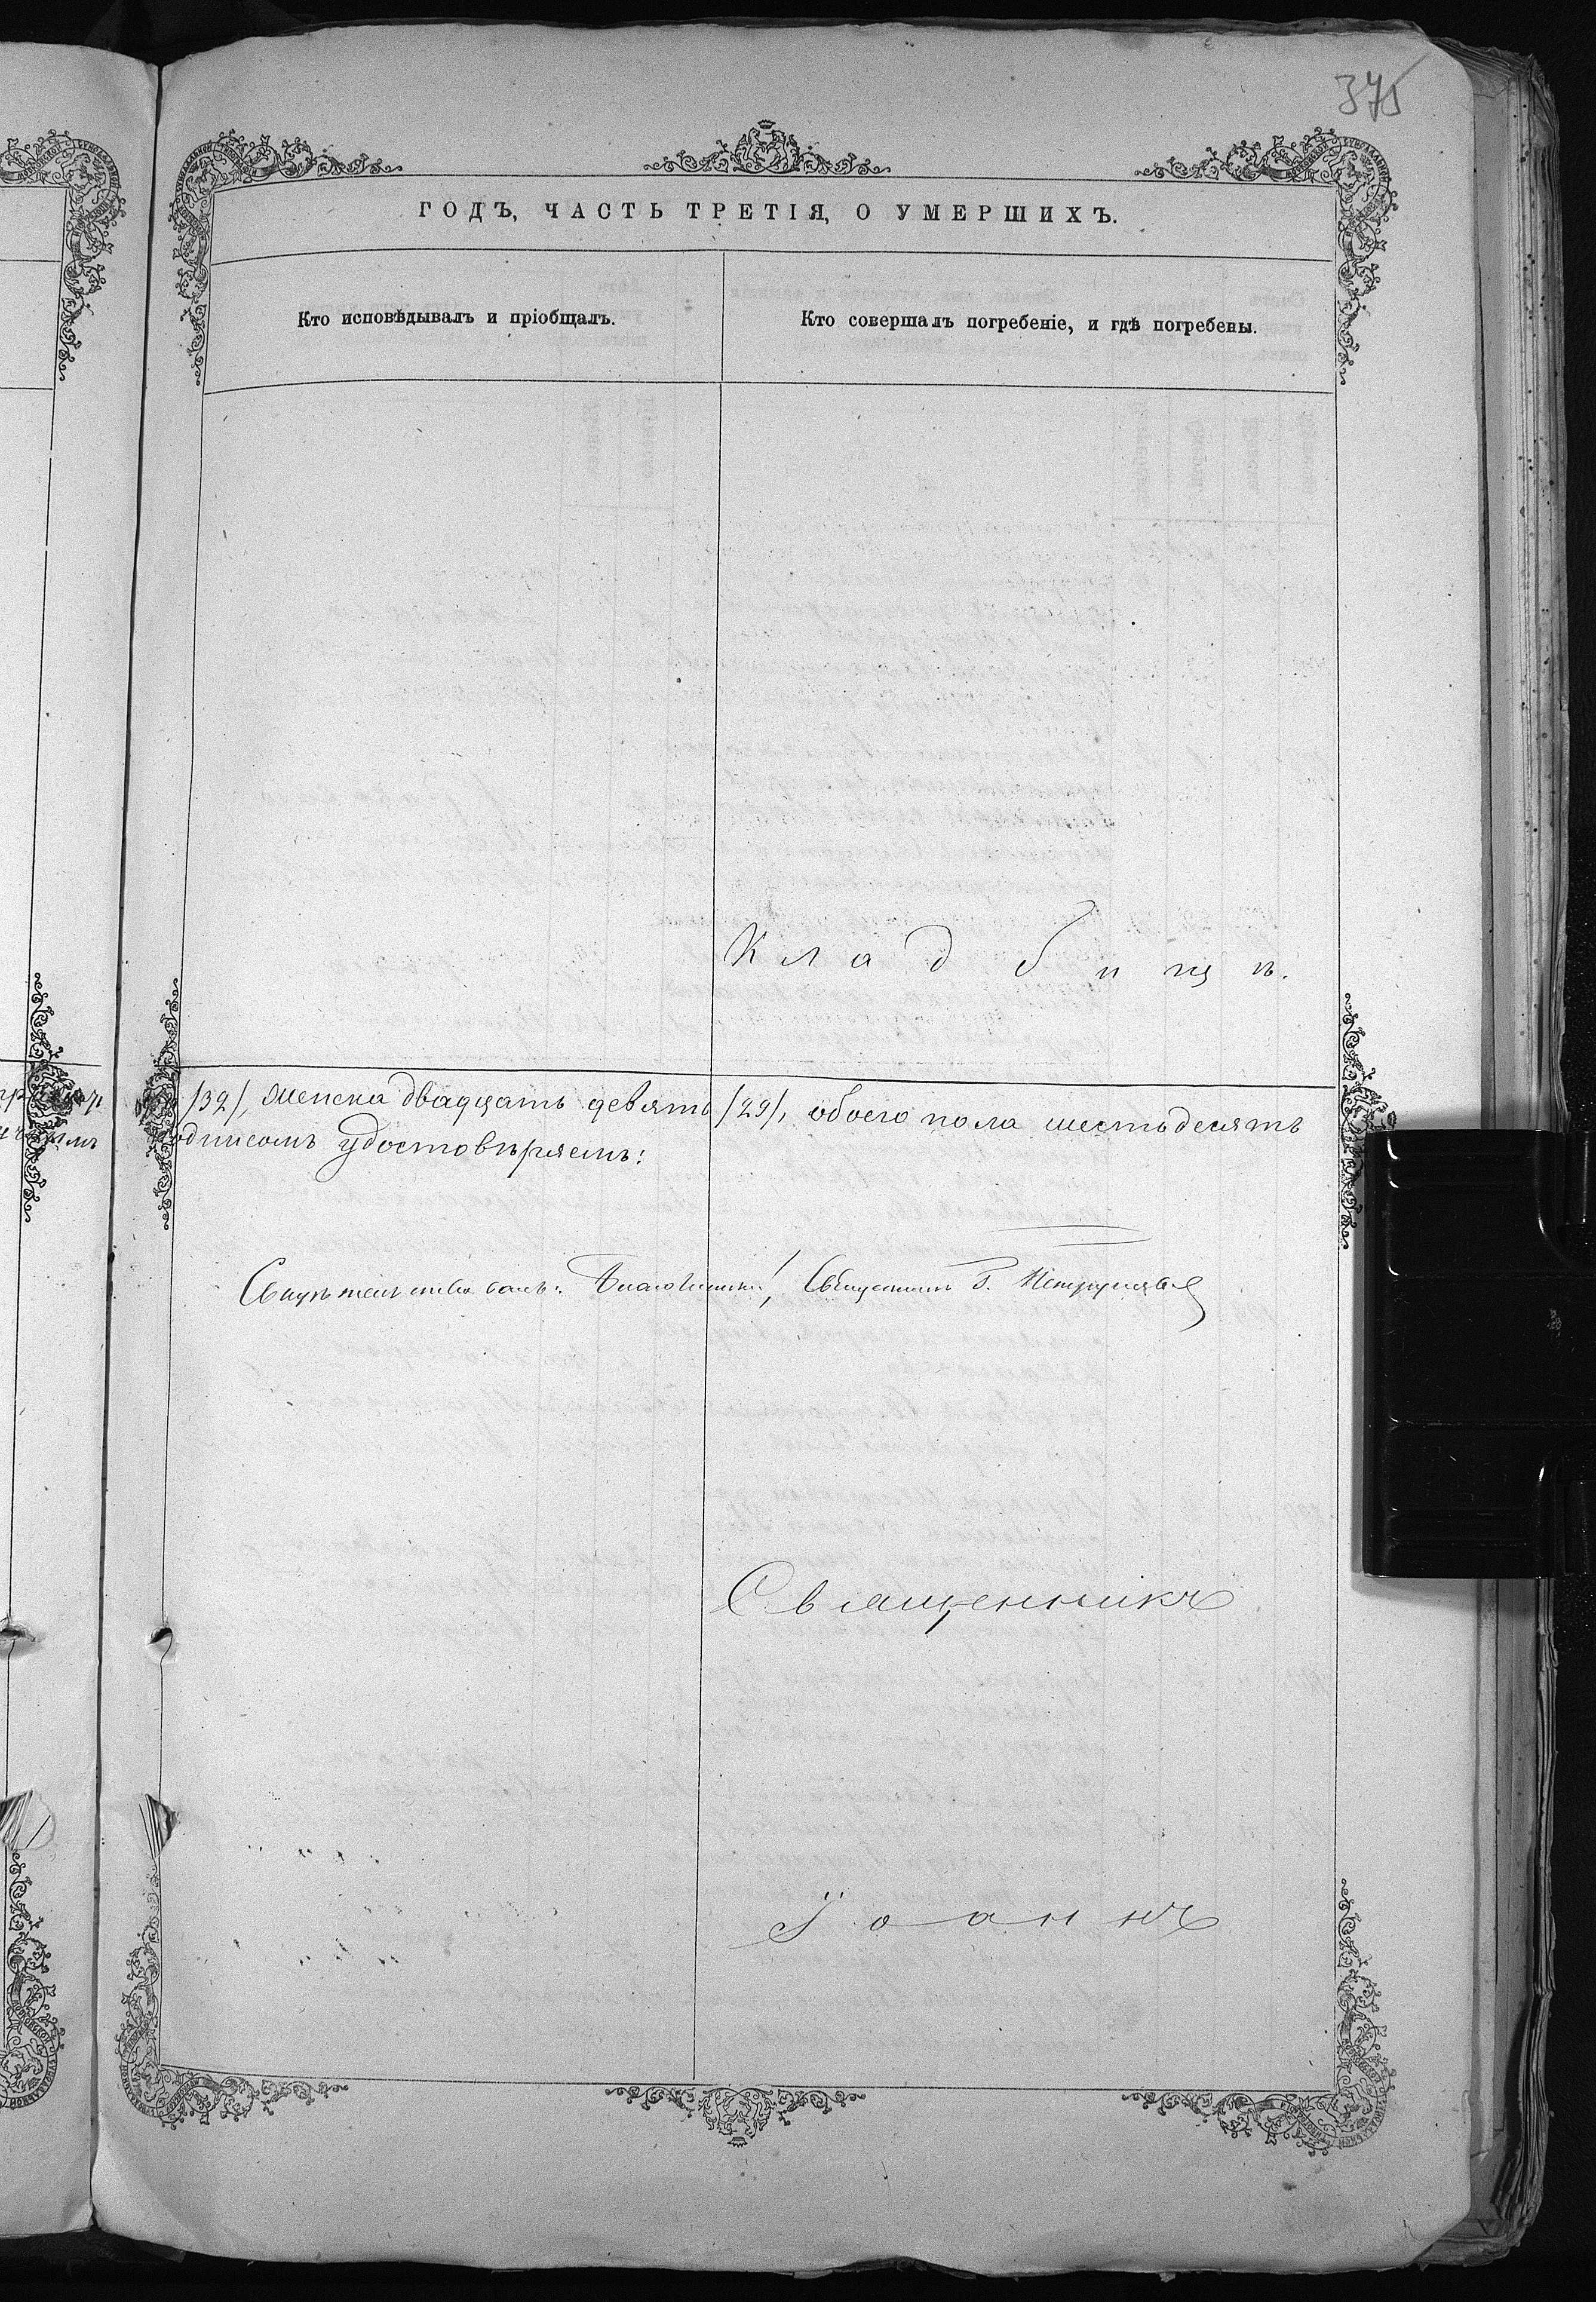 375
ГОДЪ, ЧАСТЬ ТРЕТІЯ, О УМЕРШИХЪ.
Кто исповѣдывалъ и пріобщалъ.
Кто совершалъ погребеніе, и гдѣ погребены.
Кладбищѣ.
/32/, женска двадцать девять /29/, обоего пола шестьдесятъ
подписомъ удостовѣряемъ:
Свидѣтельствовалъ: Благочинный, Священникъ
Священникъ
Іоаннъ